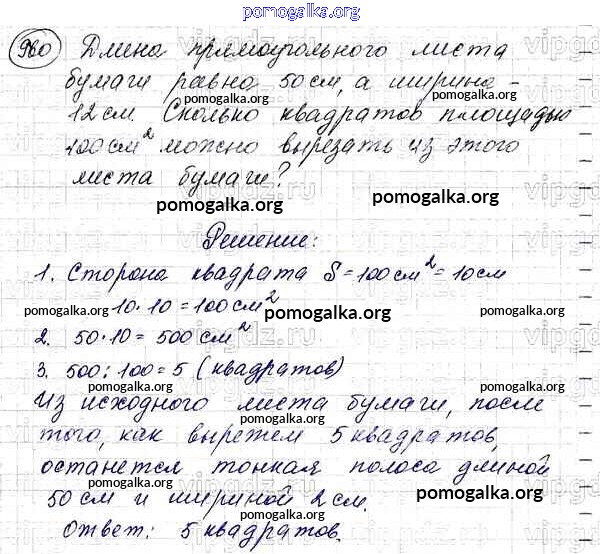 pomogalka.org
980 Длина прямоугольного листа
бумаги равна 50 см, а ширина -
pomogalka.org
12 см. Сколько квадратов площадью
100 см² можно вырезать из этого
листа бумаги?
pomogalka.org
pomogalka.org
Решение:
1. Сторона квадрата S = 100 см² = 10 см
pomogalka.org
10 · 10 = 100 см²
pomogalka.org
pomogalka.org
2. 50 · 10 = 500 см²
3. 500 : 100 = 5 (квадратов)
pomogalka.org
pomogalka.org
Из исходного листа бумаги, после
того, как вырежем 5 квадратов,
pomogalka.org
останется тонкая полоса длиной
50 см и шириной 2 см.
pomogalka.org
pomogalka.org
Ответ: 5 квадратов.